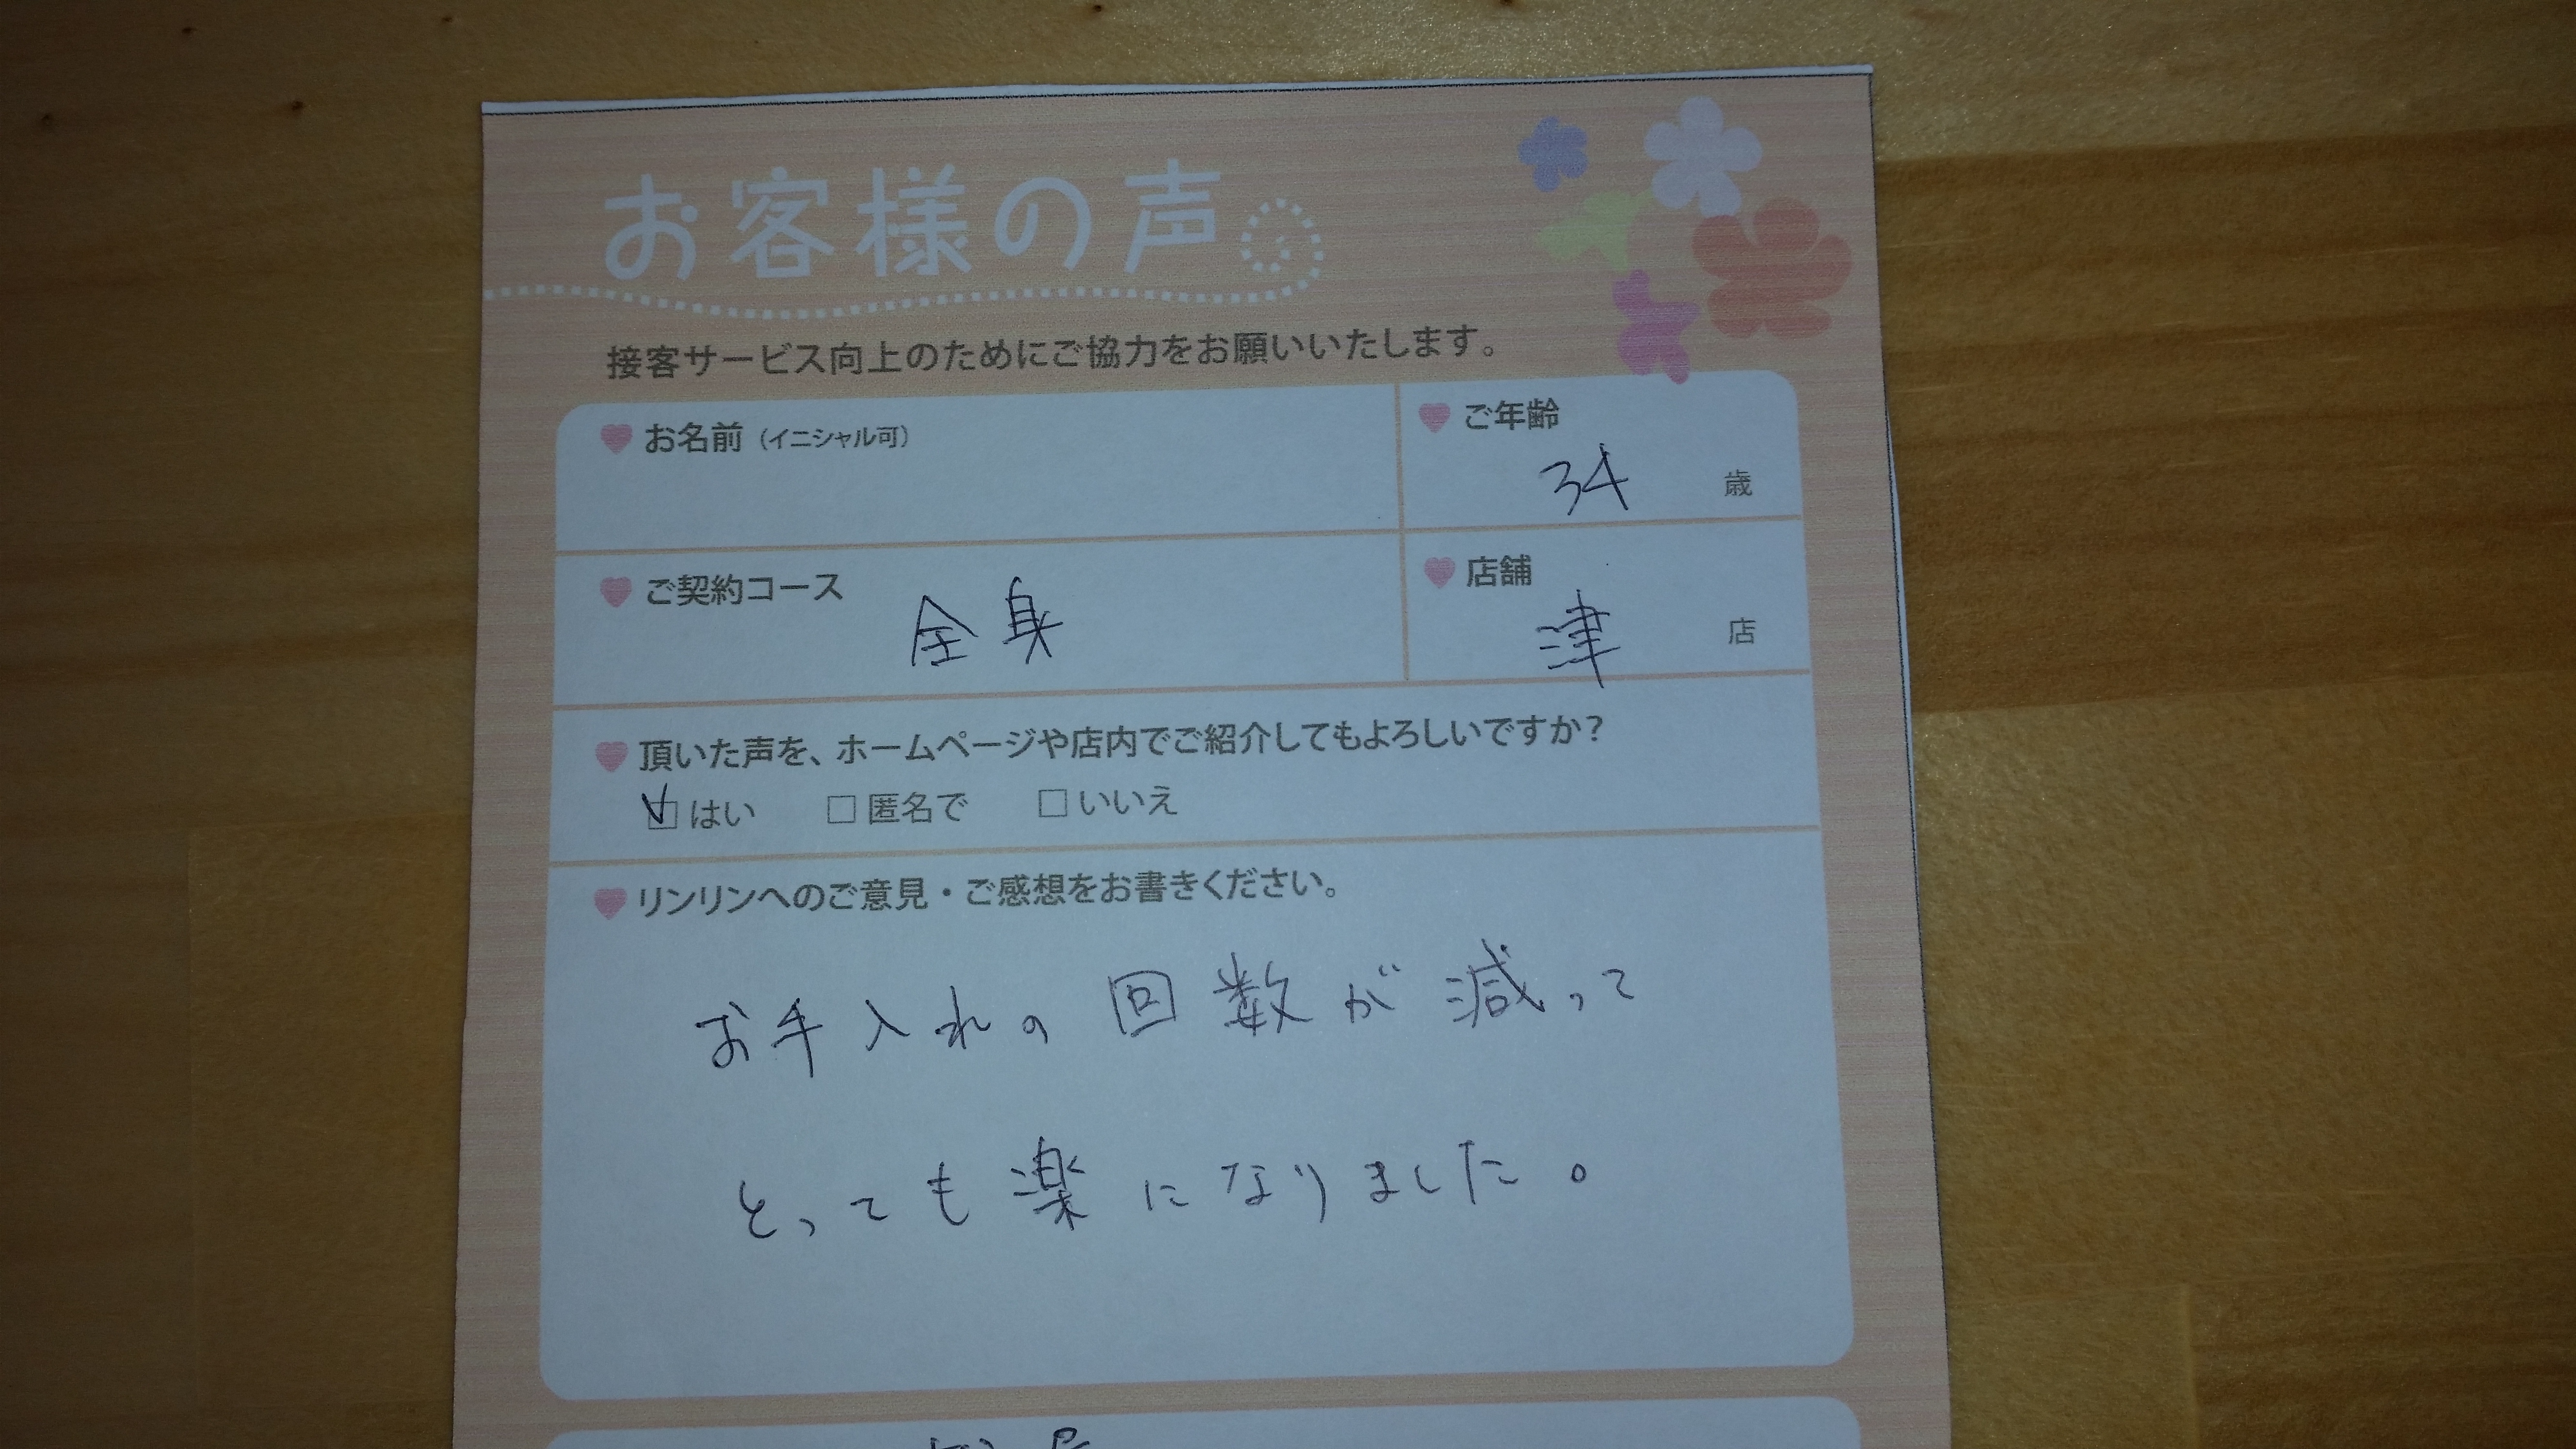 お客様の声
接客サービス向上のためにご協力をお願いいたします。
お名前（イニシャル可）
ご年齢
34 歳
ご契約コース 全身
店舗
津 店
頂いた声を、ホームページや店内でご紹介してもよろしいですか？
はい 匿名で いいえ
リンリンへのご意見・ご感想をお書きください。
お手入れの回数が減って
とっても楽になりました。